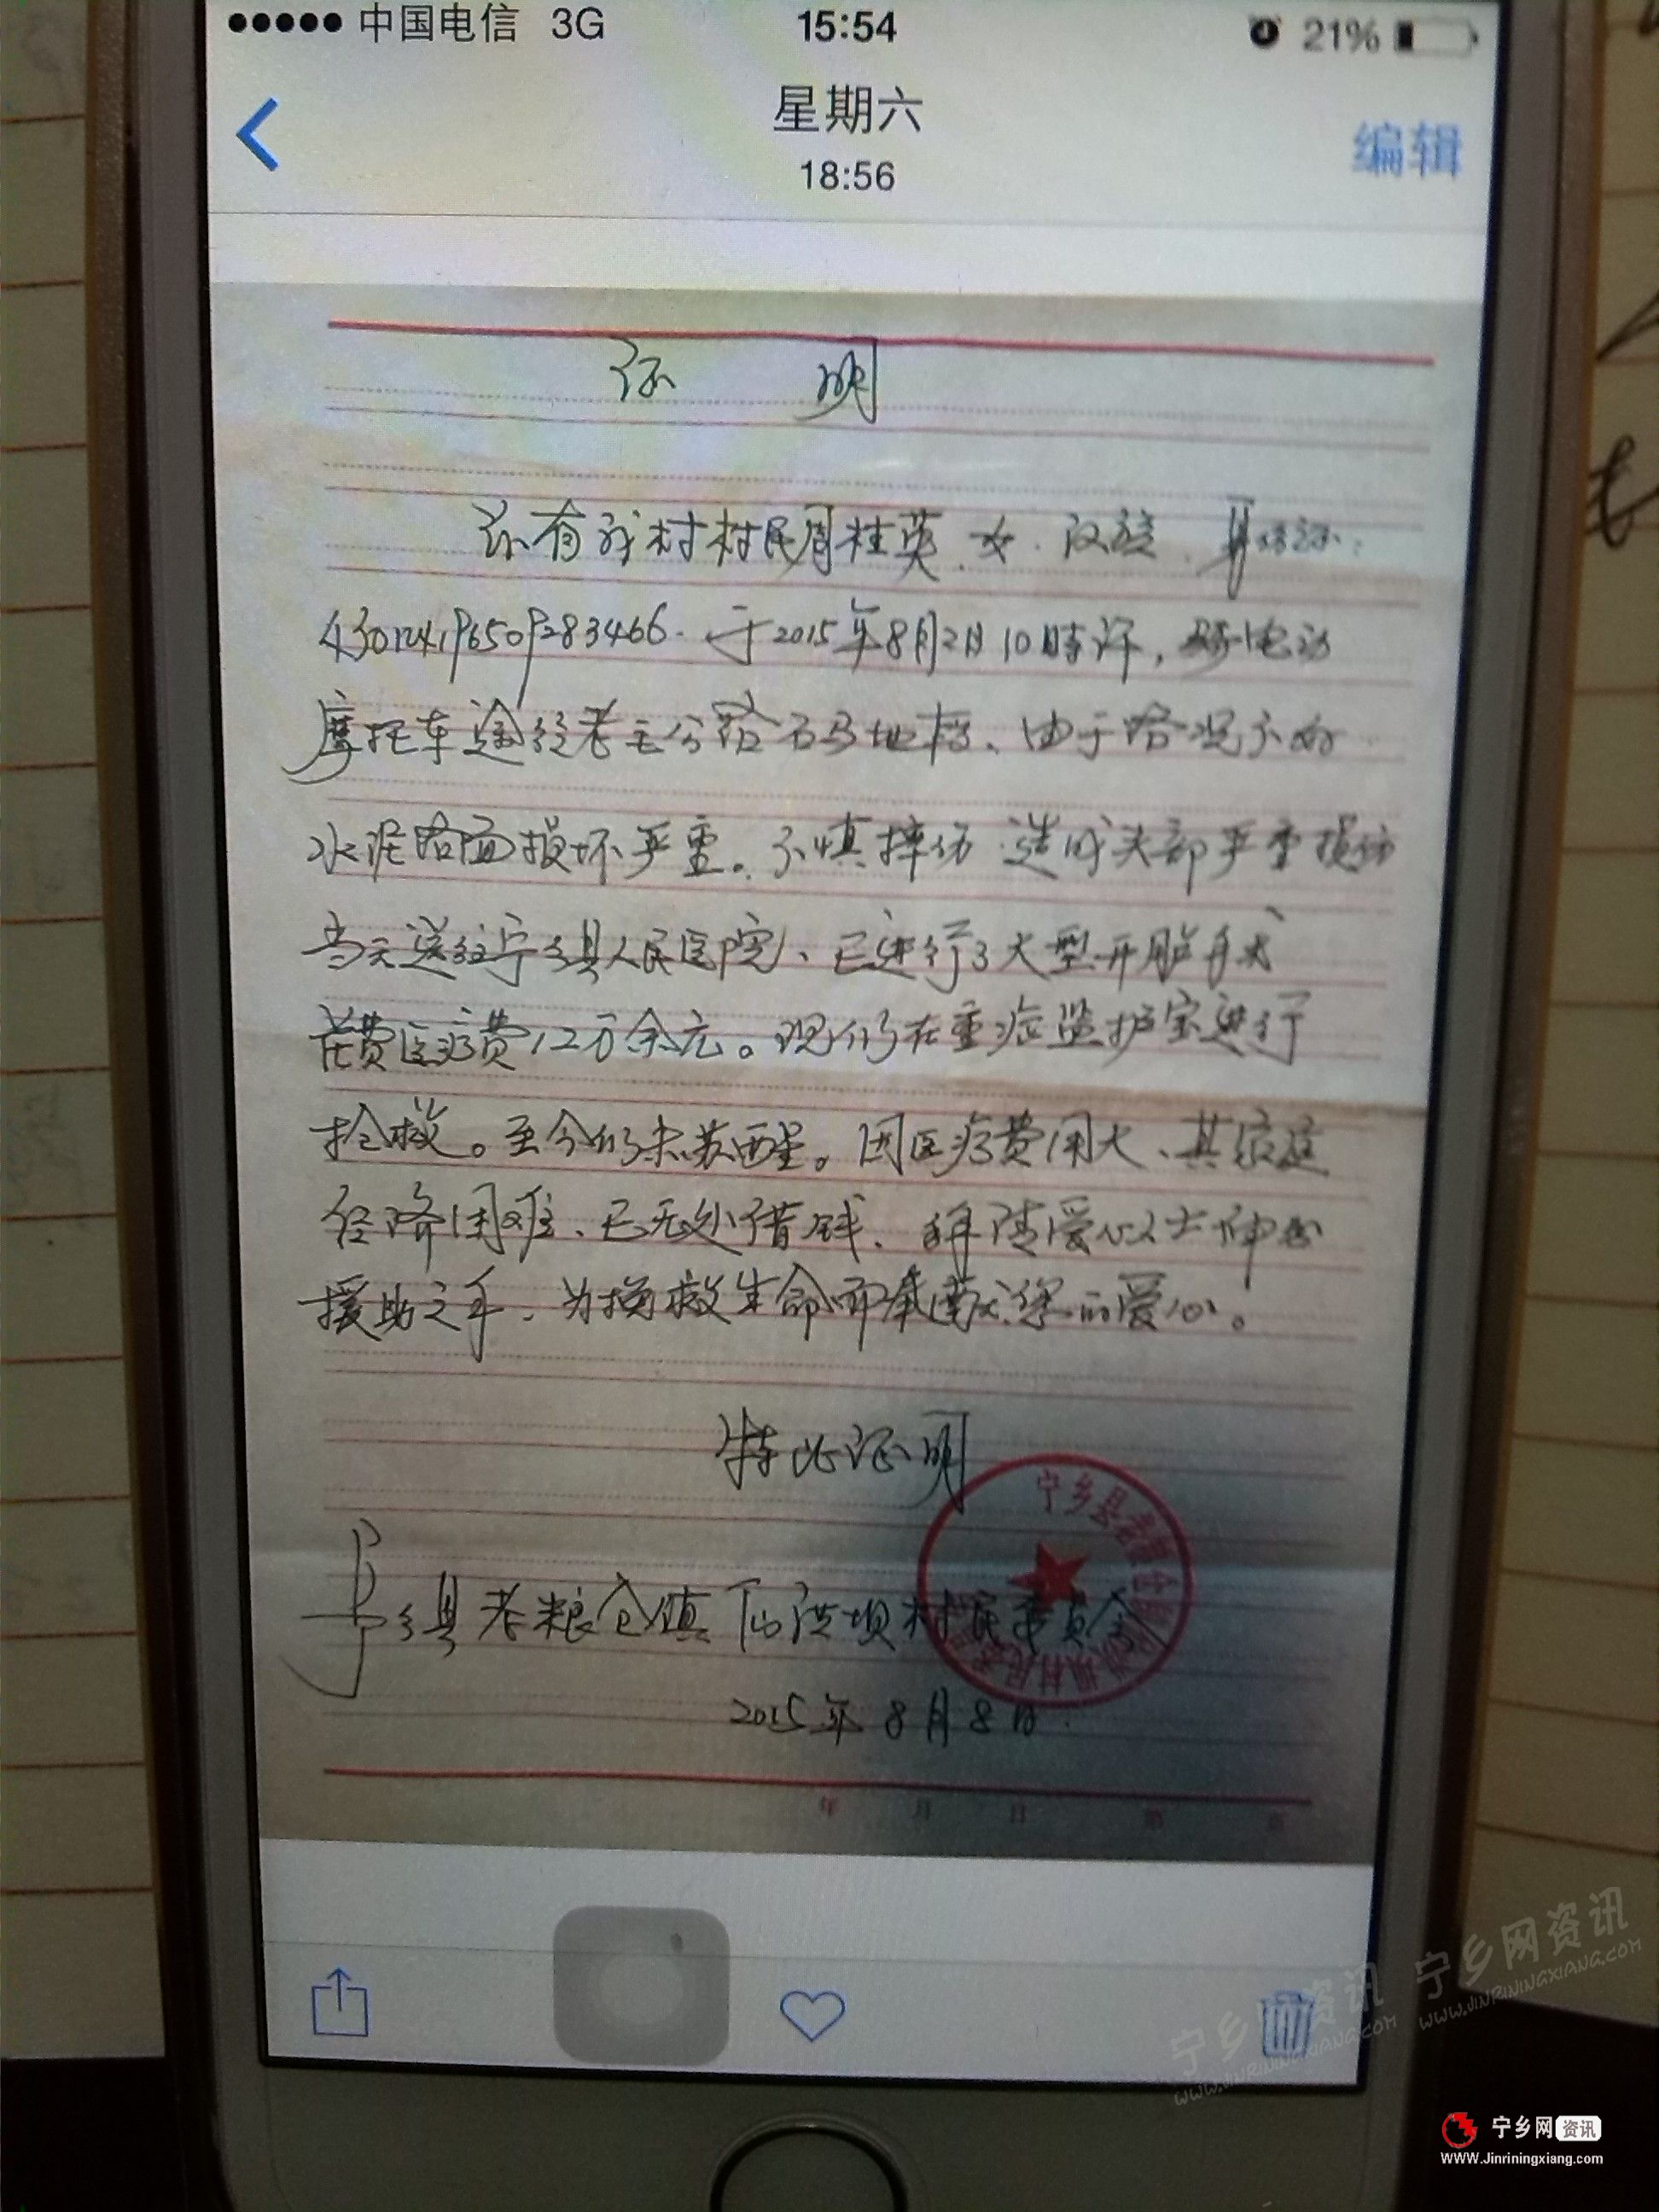 中国电信 3G 15:54 21%
星期六
18:56
编辑
证 明
兹有我村村民周桂英,女.汉族.身份证:
于2015年8月2日10时许,骑电动
摩托车途经老毛公路石马地段、由于路况不好
水泥路面损坏严重。不慎摔伤 造成头部严重损伤
当天送往宁乡县人民医院、已进行了大型开胪手术
花费医疗费12万余元。现仍在重症监护室进行
抢救。至今仍未苏醒。因医疗费用大、其家庭
经济困难、已无处借钱、拜请爱心人士伸出
援助之手、为挽救生命而奉献您的爱心。
特此证明
宁乡县老粮仓镇仙洪坝村民委员会
宁乡县老粮仓镇仙洪坝村民委员会
2015年8月8日.
年 月 日 第 页
宁乡网资讯
WWW.JINRININGXIANG.COM
宁乡网资讯
WWW.JINRININGXIANG.COM
宁乡网 资讯
WWW.Jinriningxiang.com